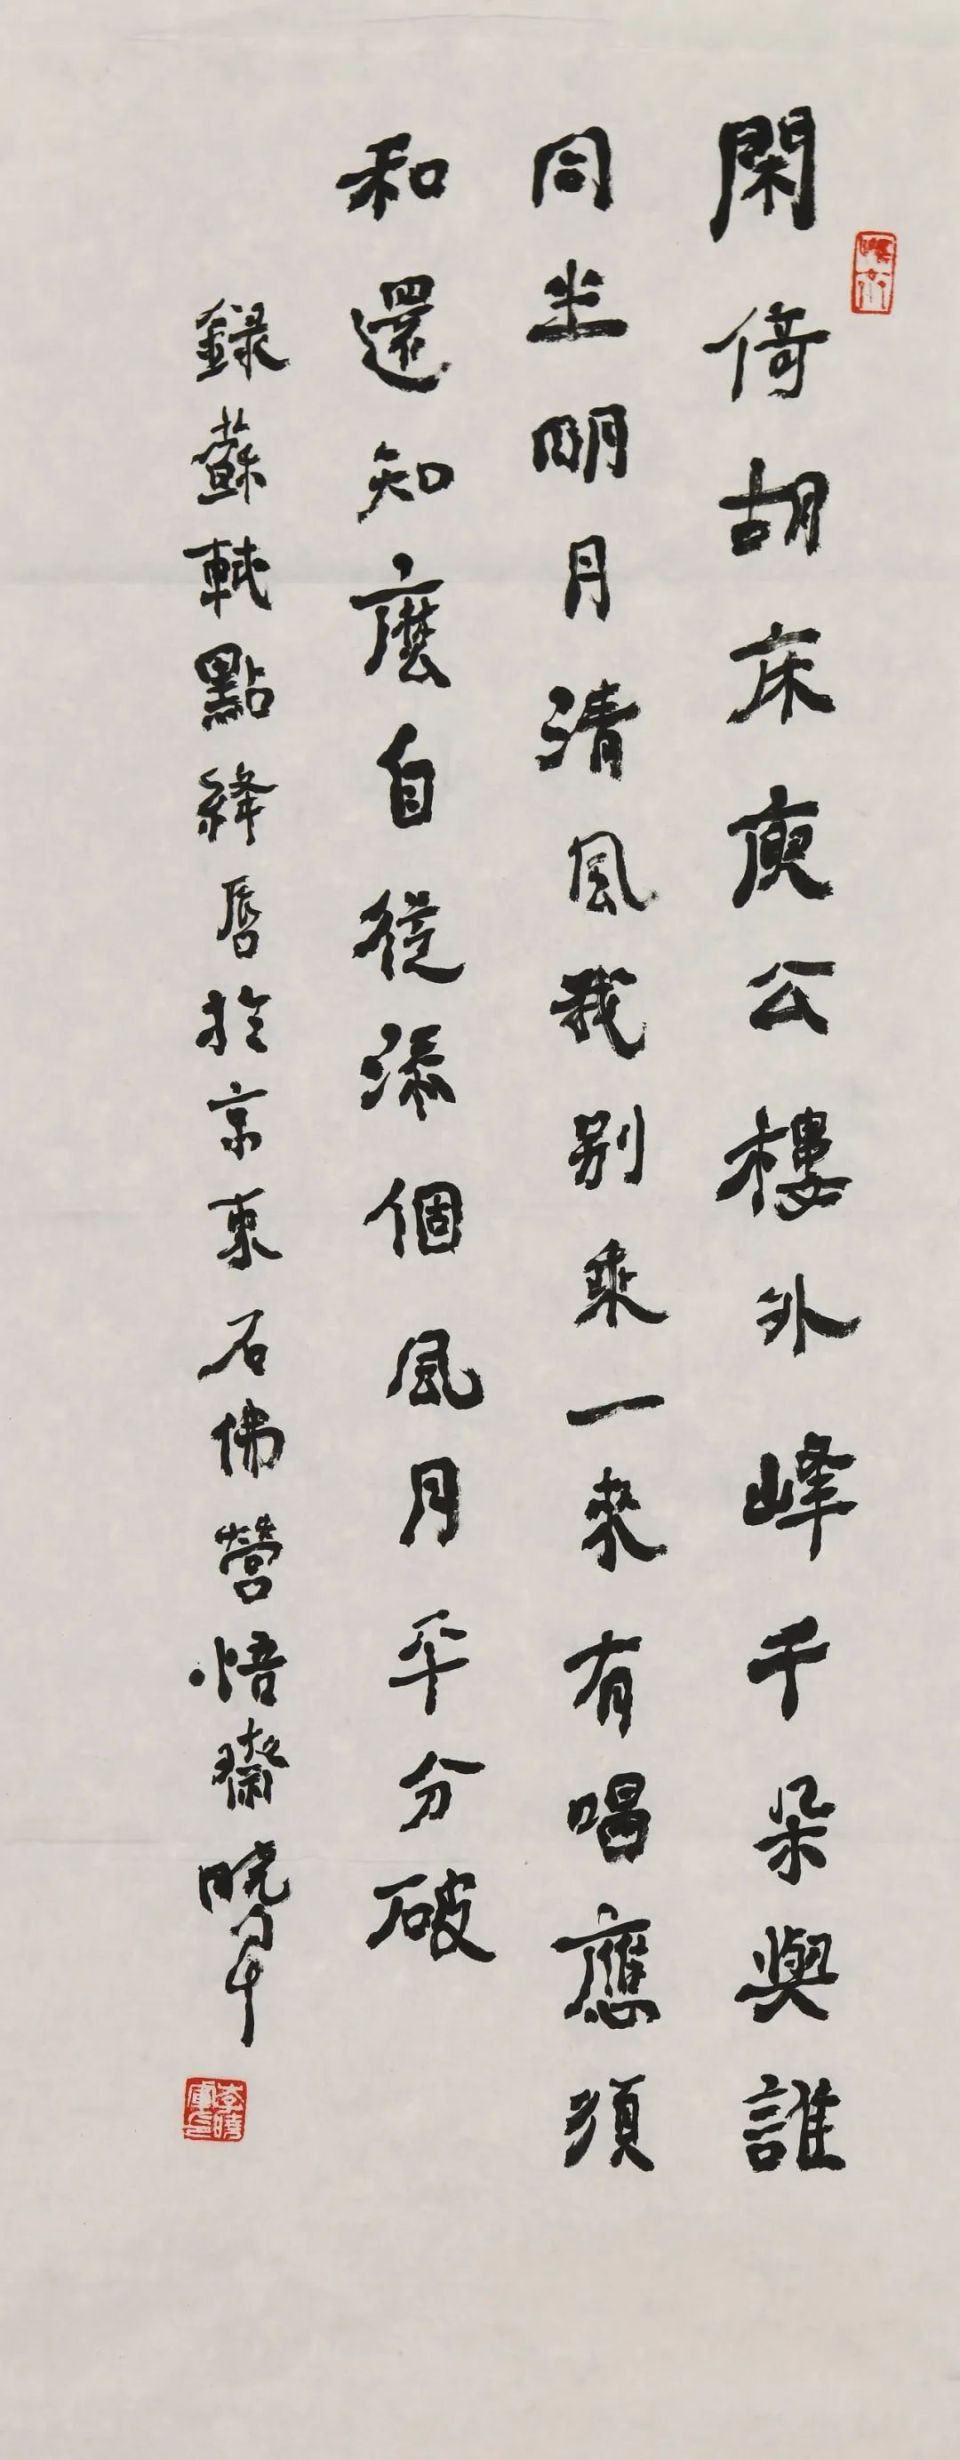 閑倚胡床庾公樓外峰千朵與誰
同坐明月清風我别乘一來有唱應須
和還知麽自從添個風月平分破
録蘇軾點絳唇於京東石佛營悟齋曉軍
李曉軍印